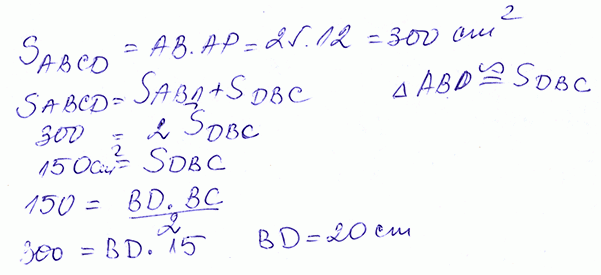 S_ABCD = AB.AP = 25.12 = 300 cm²
S_ABCD = S_ABD + S_DBC △ABD ≅ S_DBC
300 = 2 S_DBC
150cm² = S_DBC
150 = BD.BC / 2
300 = BD.15 BD = 20 cm